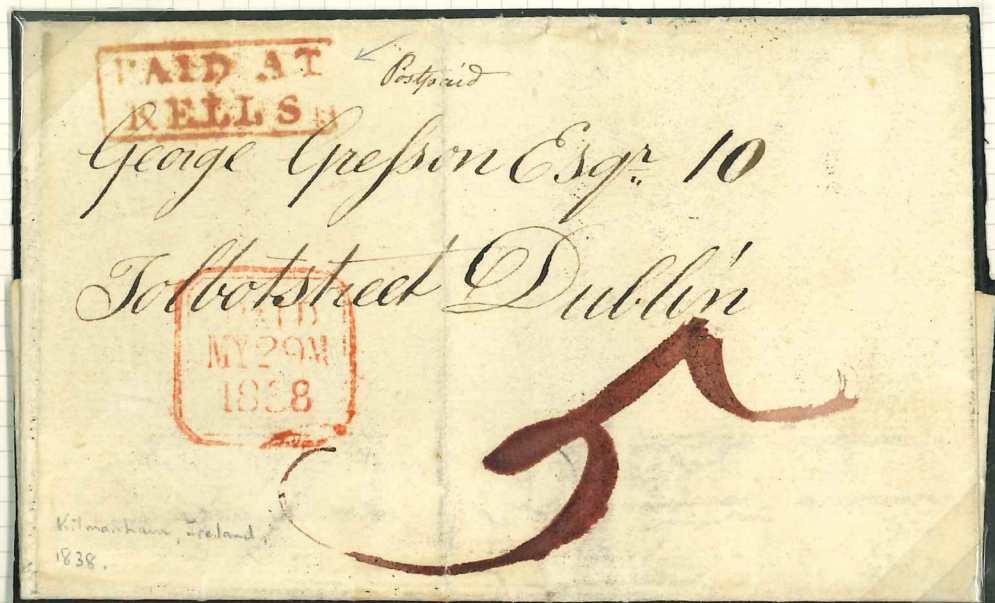 PAID AT
KELLS
Postpaid
George Greſson Esqr. 10
Tolbotstreet Dublin
PAID
MY 29 M
1838
5
Kilmainham, Ireland,
1838.